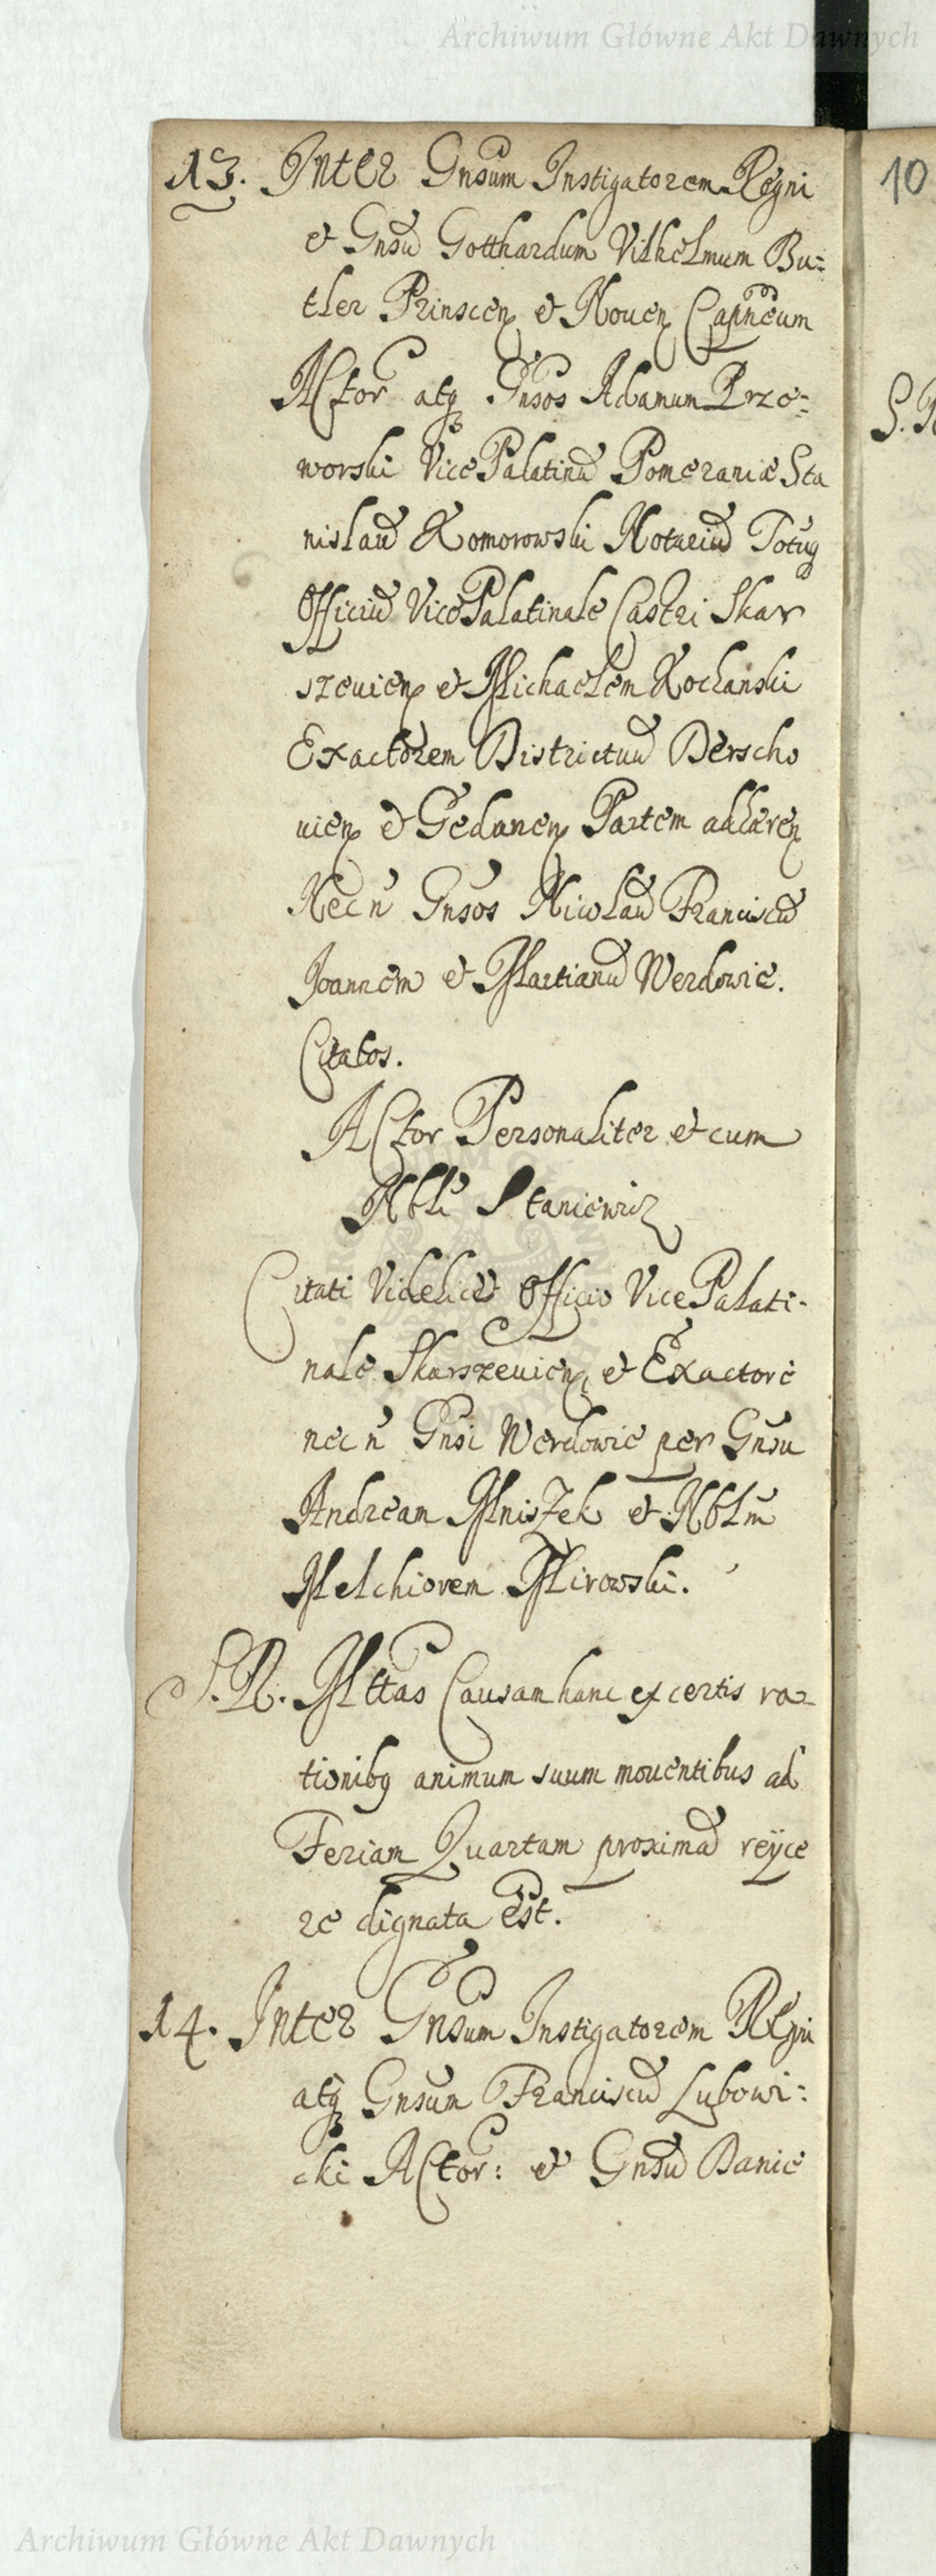 Archiwum Główne Akt Dawnych
13. Inter Gnsum Instigatorem Regni
et Gnsu Gotthardum Vilhelmum Bu:
tler Prinscen et Nouen Capneum
Actor atq Gnsos Adamum Prze:
worski Vice Palatinu Pomeraniæ Sta
nislau Komorowski Notariu Totuq
Officiu Vice Palatinale Castri Skar
szeuien et Michaelem Kochański
Exactorem Districtuu Derscho
uien et Gedanen Partem adhæren
Nec n Gnsos Nicolau Franciscu
Joannem et Martianu Werdowie.
Citatos.
Actor Personaliter et cum
Nbli Staniewicz
Citati Videlicet Officio Vice Palati-
nale Skarszeuien et Exactore
nec n Gnsi Werdowie per Gnsu
Andream Mniszek et Nblm
Melchiorem Mirowski.
S. R. Mttas Causam hanc ex certis ra-
tionibq animum suum mouentibus ad
Feriam Quartam proximã reijce
re dignata Est.
14. Inter Gnsum Instigatorem Regni
atq Gnsum Franciscu Lubowi:
cki Actor: et Gnsu Danie
10
Archiwum Główne Akt Dawnych